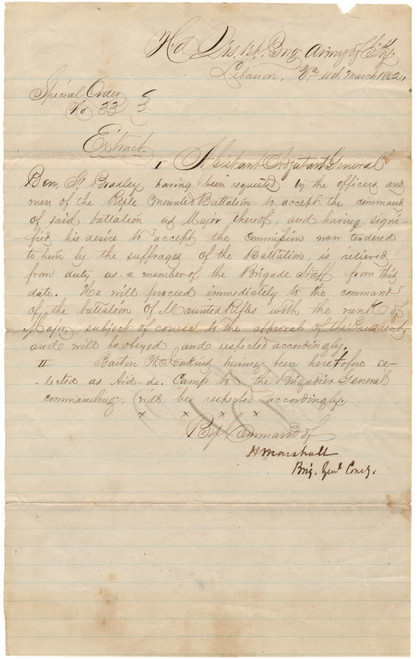 Hd Qrs. 1st. Brig Army of E. Ky.
Lebanon, Va. March 1862.
Special Order
No 33
Extract
I Assistant Adjutant General
Ben. F. Bradley having been requested by the officers and
men of the Rifle Mounted Battalion to accept the command
of said battalion as Major thereof, and having signi-
fied his desire to accept the commission now tendered
to him by the suffrages of the Battalion, is relieved
from duty as a member of the Brigade Staff from this
date. He will proceed immediately to the command
of the battalion of Mounted Rifles with the rank of
Major, subject of course to the approval of the
and will be obeyed and respected accordingly.
II Barton W. Jenkins having been heretofore se-
lected as Aid de Camp to the Brigadier General
commanding, will be respected accordingly.
x x x x
By Command of
H Marshall
Brig. Genl Comdg.